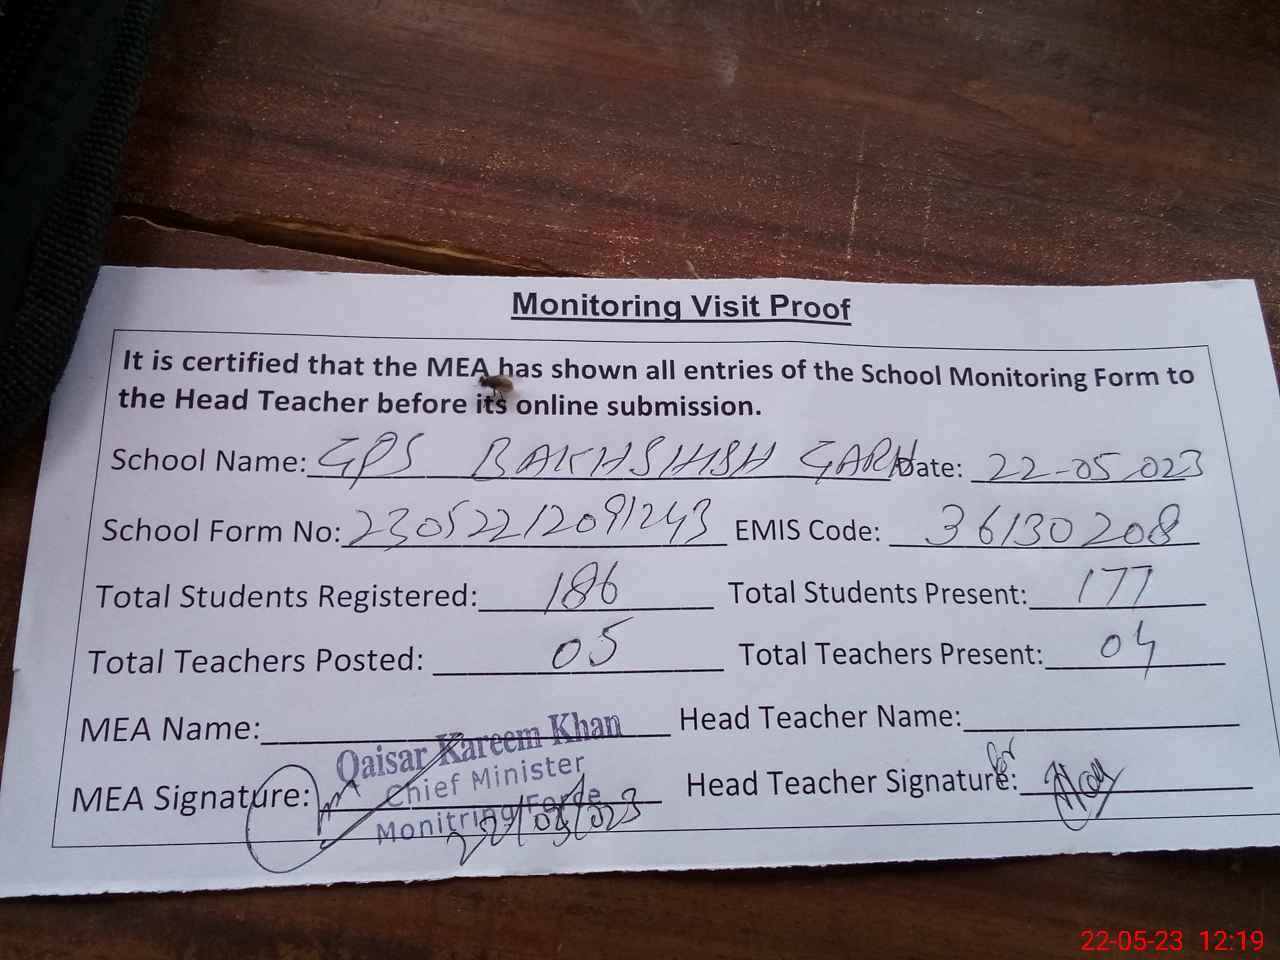 Monitoring Visit Proof
It is certified that the MEA has shown all entries of the School Monitoring Form to
the Head Teacher before its online submission.
School Name: GPS BAKHSHISH GARH Date: 22-05,023
School Form No: 23052212091243 EMIS Code: 36130208
Total Students Registered: 186 Total Students Present: 177
Total Teachers Posted: 05 Total Teachers Present: 04
MEA Name: Head Teacher Name:
Qaisar Kareem Khan
Chief Minister
MEA Signature: Head Teacher Signature: for
Monitring Force
22/05/023
22-05-23 12:19